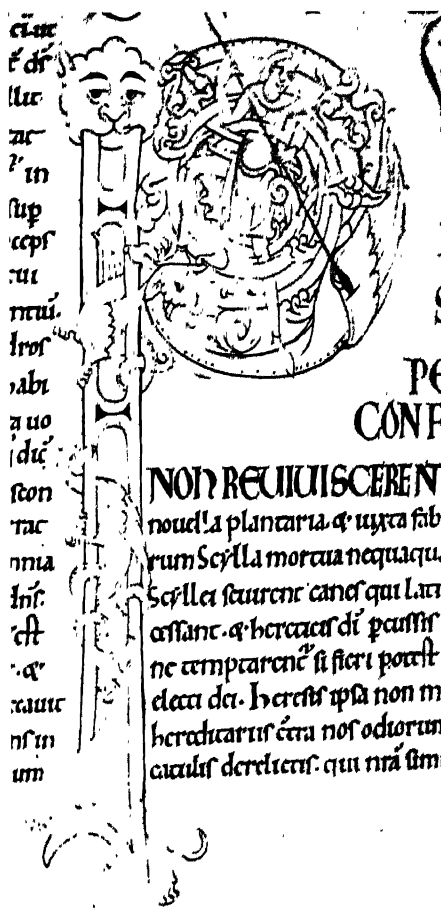 llit
tac
in
sup
ceps
cui
ntuī.
dros
abi
a uo
dic̄
scon
rac
nnia
dn̄s.
est
. &
cauit
ns in
um
S
PE
CONF
NON REVIUISCERENT
nouella plantaria. & iuxta fab
rum Scylla mortua nequaqua
Scyllei seuirent canes qui latr
cessant. & hereticis dī pcussis
ne temptarent si fieri potest
electi dei. Heresis ipsa non m
hereditariis c̄tra nos odiorum
catulis derelictis. qui nr̄ā sim